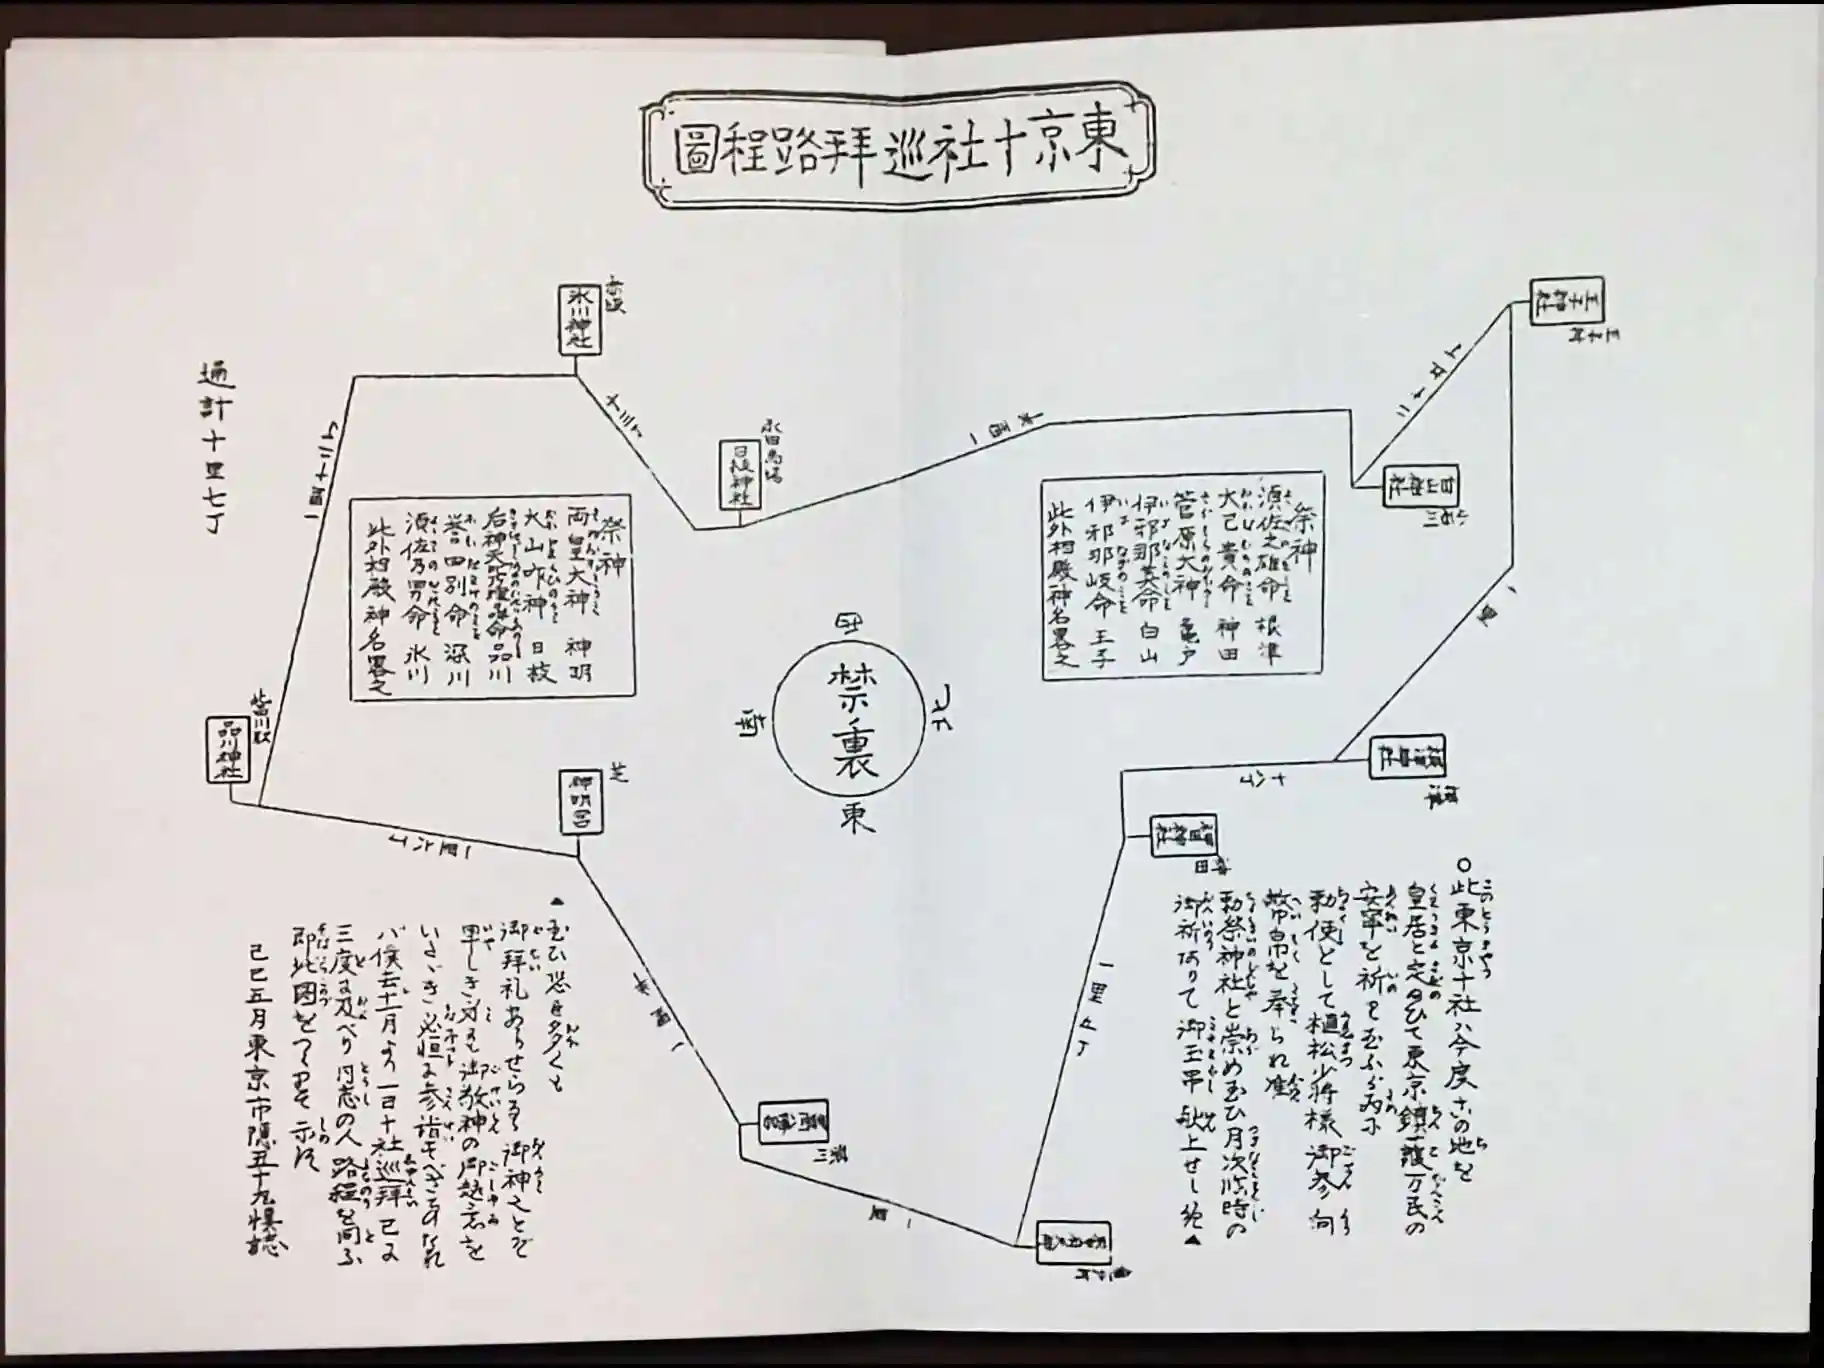 東京十社巡拜路程圖
王子神社
王子村
二十五丁
白山神社
一里
根津神社
根津
十八丁
神田神社
神田
一里九丁
亀戸
一里
深川
一里半
神明宮
芝
一里六丁
品川神社
品川駅
一里十二丁
氷川神社
赤坂
十三丁
日枝神社
永田馬場
一里半
祭神
須佐之雄命 根津
大己貴命 神田
菅原大神 亀戸
伊邪那美命 白山
伊邪那岐命 王子
此外相殿神名畧之
禁裏
西
北
南
東
祭神
両皇大神 神明
大山咋神 日枝
后神天比理乃咩命 品川
誉田別命 深川
須佐乃男命 氷川
此外相殿神名畧之
通計十里七丁
○此東京十社ハ今度この地を
皇居と定めひて東京鎮護万民の
安寧を祈らせ玉ふ
勅使として植松少将様御参向
幣帛を奉られ准
勅祭神社と崇め玉ひ月次臨時の
御祈ありて御玉串献上せし給▲
▲玉ひ恐も多くも
御拜礼あらせらるる御神々とぞ
いたゞき必恒に参詣すべきことなれ
バ僕去十一月より一日十社巡拜已に
三度に及べり同志の人路程を問ふ
即此図をつくりて示す
己巳五月東京市隠五十九慎誌